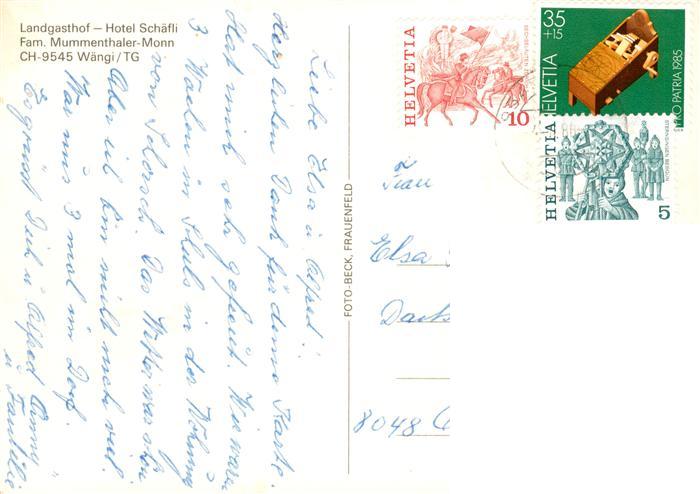 Landgasthof – Hotel Schäfli
Fam. Mummenthaler-Monn
CH-9545 Wängi / TG
Liebe Elsa u. Alfred!
Herzlichen Dank für deine Karte.
Hat mich sehr gefreut. Wir waren
3 Wochen in in der Wohnung
von Das Wetter war schön
Aber ich bin nicht viel.
War nur 3 mal im Dorf.
Es grüsst Dich u. Alfred
u Familie
FOTO-BECK, FRAUENFELD
HELVETIA
10
35
+15
HELVETIA
PRO PATRIA 1985
HELVETIA
STERNSINGEN BERGÜN
5
Frau
Elsa
8048